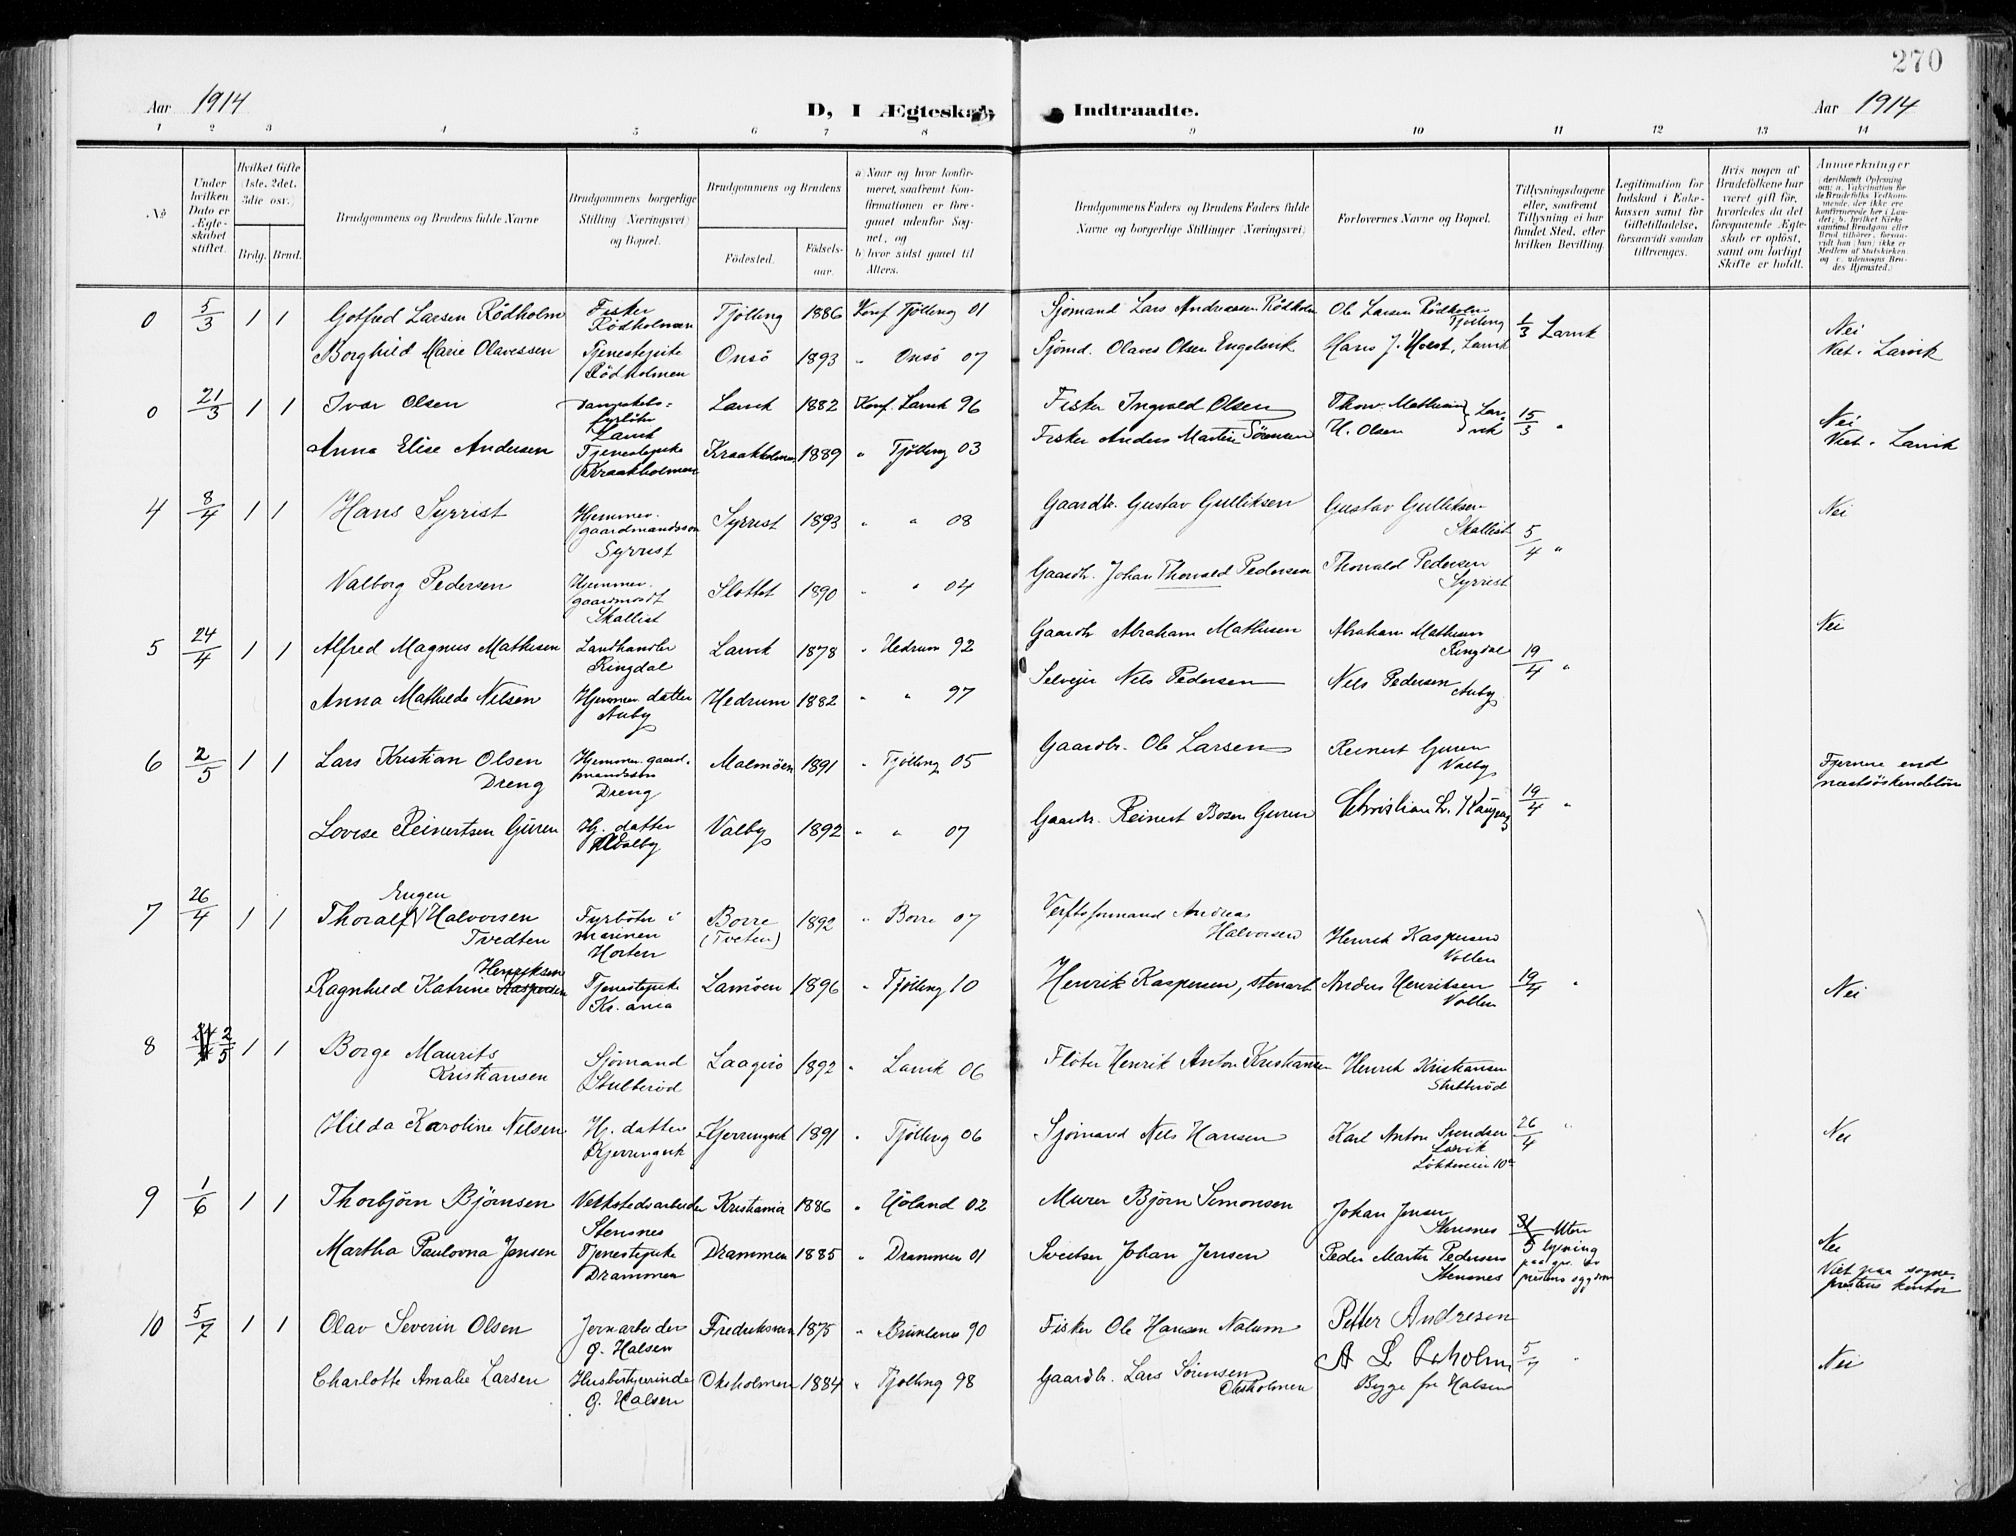 270
Aar 1914
D, I Ægteskab Indtraadte.
Aar 1914
1 2 3 4 5 6 7 8 9 10 11 12 13 14
No
Under hvilken Dato er Ægteskabet stiftet.
Hvilket Gifte (1ste, 2det, 3die osv.)
Brdg. Brud.
Brudgommens og Brudens fulde Navne
Brudgommens borgerlige Stilling (Næringsvei) og Bopæl.
Brudgommens og Brudens
Fødested.
Fødsels-aar.
a) Naar og hvor konfirmeret, saafremt Konfirmationen er foregaaet udenfor Sognet, og
b) hvor sidst gaaet til Alters.
Brudgommens Faders og Brudens Faders fulde Navne og borgerlige Stillinger (Næringsvei)
Forlovernes Navne og Bopæl.
Tillysningsdagene eller, saafremt Tillysning ei har fundet Sted, efter hvilken Bevilling.
Legitimation for Indskud i Enkekassen samt for Giftetilladelse, forsaavidt saadan tiltrænges.
Hvis nogen af Brudefolkene har været gift før, hvorledes da det foregaaende Ægteskab er opløst, samt om lovligt Skifte er holdt.
Anmerkninger
0 5/3 1 1 Gotfred Larsen Rødholm Fisker Rødholmen Tjølling 1886 Konf. Tjølling 01 Sjømand Lars Andreassen Rødholm Ole Larsen Rødholm Tjølling 1/3 Larvik Nei
Borghild Marie Olavessen Tjenestepike Rødholmen Onsø 1893 " Onsø 07 Sjømd. Olaves Olsen Engelsvik Hans J. Hvest, Larvik Viet i Larvik
0 21/3 1 1 Ivar Olsen Dampskibsfyrbøter Larvik Larvik 1882 Konf. Larvik 96 Fisker Ingvald Olsen Thorv. Mathisen Larvik 15/3 " Nei
Anna Elise Andersen Tjenestepike Kraakholmen Kraakholmen 1889 " Tjølling 03 Fisker Anders Martin Sørensen H. Olsen Viet i Larvik
4 8/4 1 1 Hans Syrrist Hjemmev. gaardmandssøn Syrrist Syrrist 1893 " " 08 Gaardbr. Gustav Gulliksen Gustav Gulliksen Skallist 5/4 " Nei
Valborg Pedersen Hjemmev. gaardm.datt Skallist Slottet 1890 " " 04 Gaardbr. Johan Thorvald Pedersen Thorvald Pedersen Syrrist
5 24/4 1 1 Alfred Magnus Mathisen Landhandler Ringdal Larvik 1878 " Hedrum 92 Gaardbr Abraham Mathisen Abraham Mathisen Ringdal 19/4 " Nei
Anna Mathilde Nilsen Hjemmev. datter Auby Hedrum 1882 " " 97 Selveier Nils Pedersen Nils Pedersen Auby
6 2/5 1 1 Lars Kristian Olsen Dreng Hjemmev. gaardmandssøn Dreng Malmøen 1891 " Tjølling 05 Gaardbr. Ole Larsen Reinert Guren Valby Fjernere end næstsøskendebørn
Lovise Reinertsen Guren Hj. datter Valby Valby 1892 " " 07 Gaardbr. Reinert Bosen Guren Christian L. Kaupang 19/4 "
7 26/4 1 1 Thoralf Eugen Halvorsen Tvedten Fyrbøter i marinen Horten Borre (Tveten) 1892 " Borre 07 Verftsformand Andreas Halvorsen Henrik Kaspersen Vollen
Ragnhild Katrine Henriksen Tjenestepike Kr.ania Lamøen 1896 " Tjølling 10 Henrik Kaspersen, stenarb Anders Henriksen Vollen 19/4 " Nei
8 2/5 1 1 Borge Maurits Kristiansen Sjømand Stubberød Laagerø 1892 " Larvik 06 Fløter Henrik Anton Kristiansen Henrik Kristiansen Stubberød
Hilda Karoline Nilsen Hj. datter Kjerringvik Kjerringvik 1891 " Tjølling 06 Sjømand Nils Hansen Karl Anton Svendsen Larvik 10a 26/4 " Nei
9 1/6 1 1 Thorbjørn Bjørnsen Verkstedsarbeider Stensnes Kristiania 1886 " Høland 02 Murer Bjørn Simonsen Johan Jensen Stensnes 31/5 Uten lysning
Martha Paulovna Jensen Tjenestepike Drammen Drammen 1885 " Drammen 01 Sveitser Johan Jensen Peder Martin Pedersen Stensnes Nei Viet paa sogneprestens kontor
10 5/7 1 1 Olav Severin Olsen Jernarbeider Ø. Halsen Fredriksværn 1875 " Brunlanes 90 Fisker Ole Hansen Nalum Petter Andresen
Charlotte Amalie Larsen Husbestyrerinde Ø. Halsen Oksholmen 1884 " Tjølling 98 Gaardbr. Lars Sørensen Oksholmen A L Oxholm Bygge for Halsen 5/7 " Nei